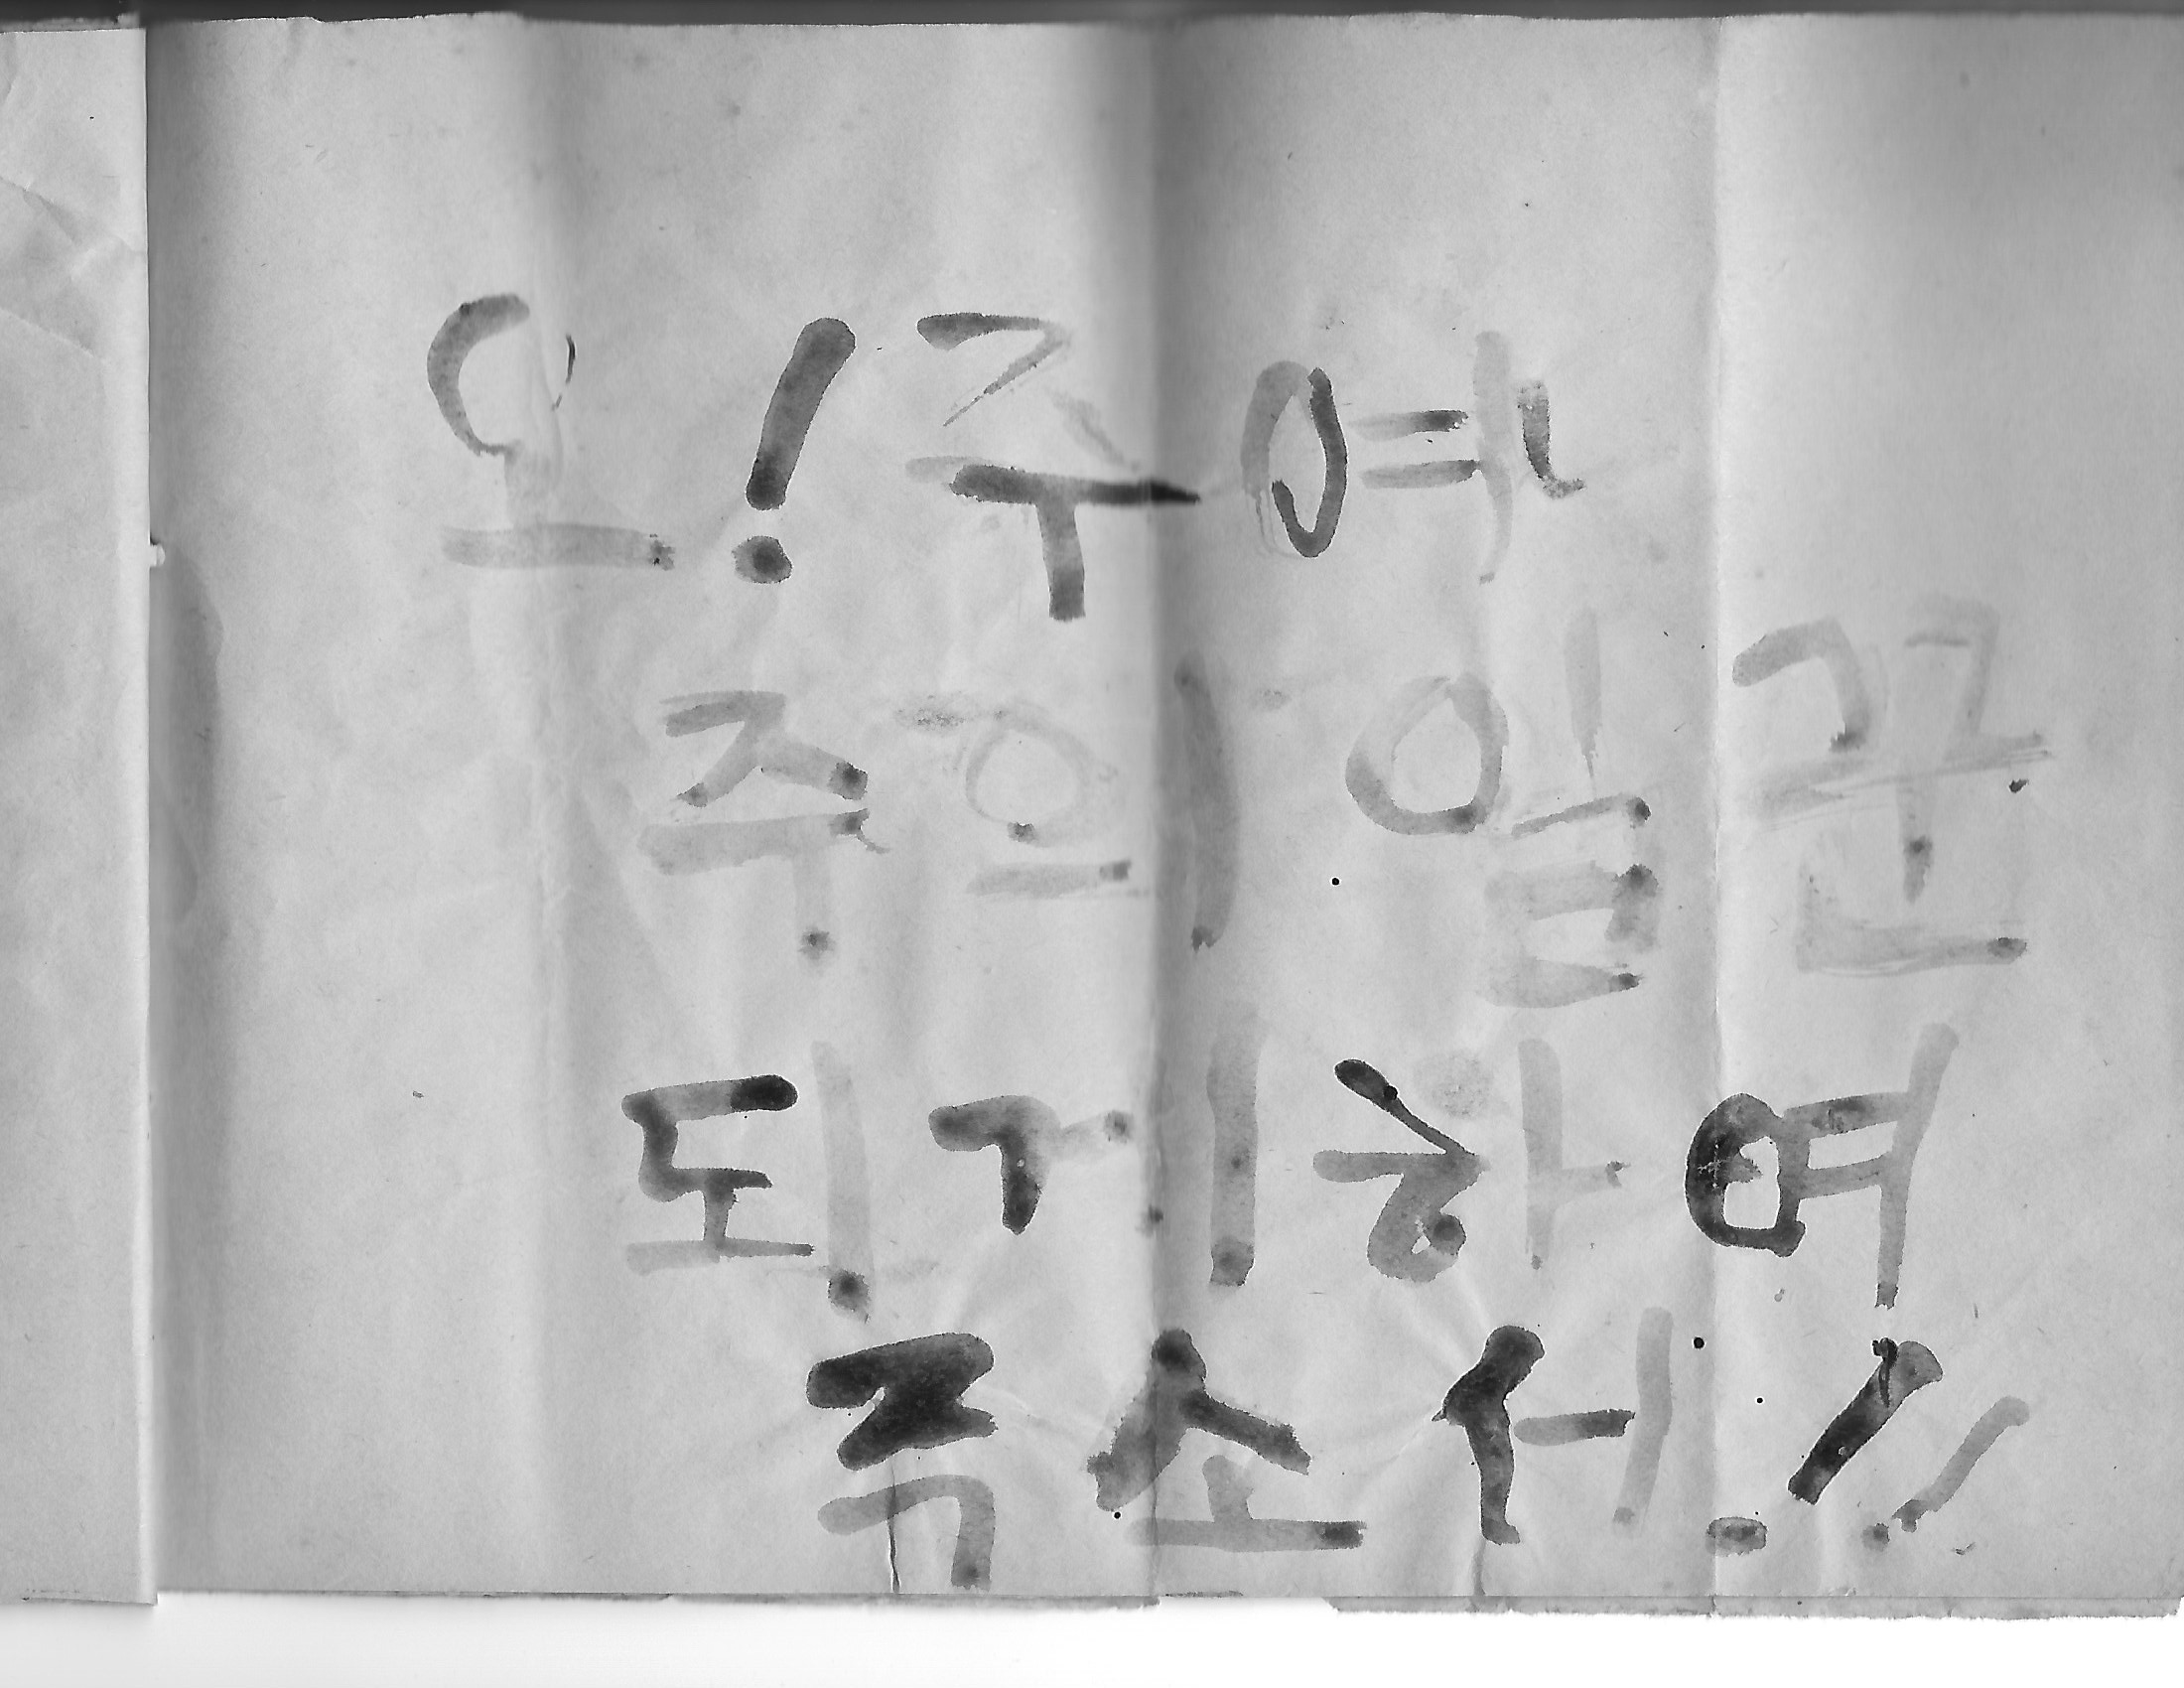 오! 주여,
주의 일꾼
되기 하여
주소서!!